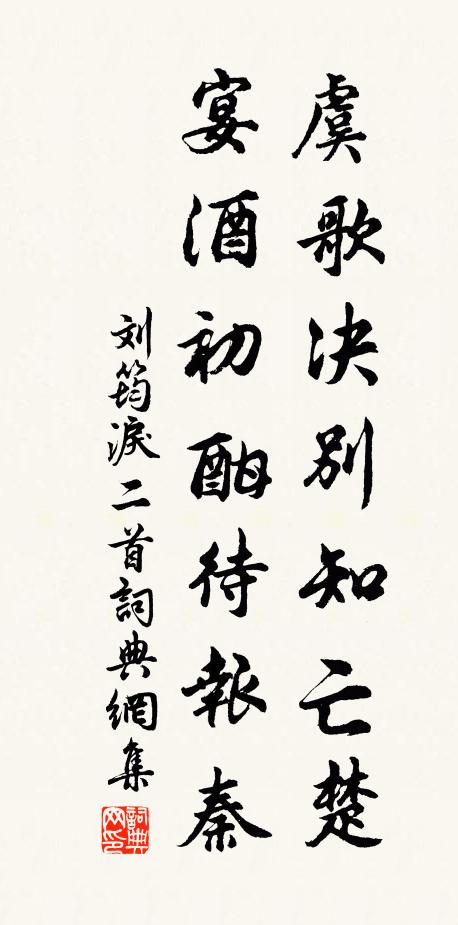 虞歌决別知亡楚
宴酒初酣待報秦
刘筠淚二首詞典網集
詞典
网印